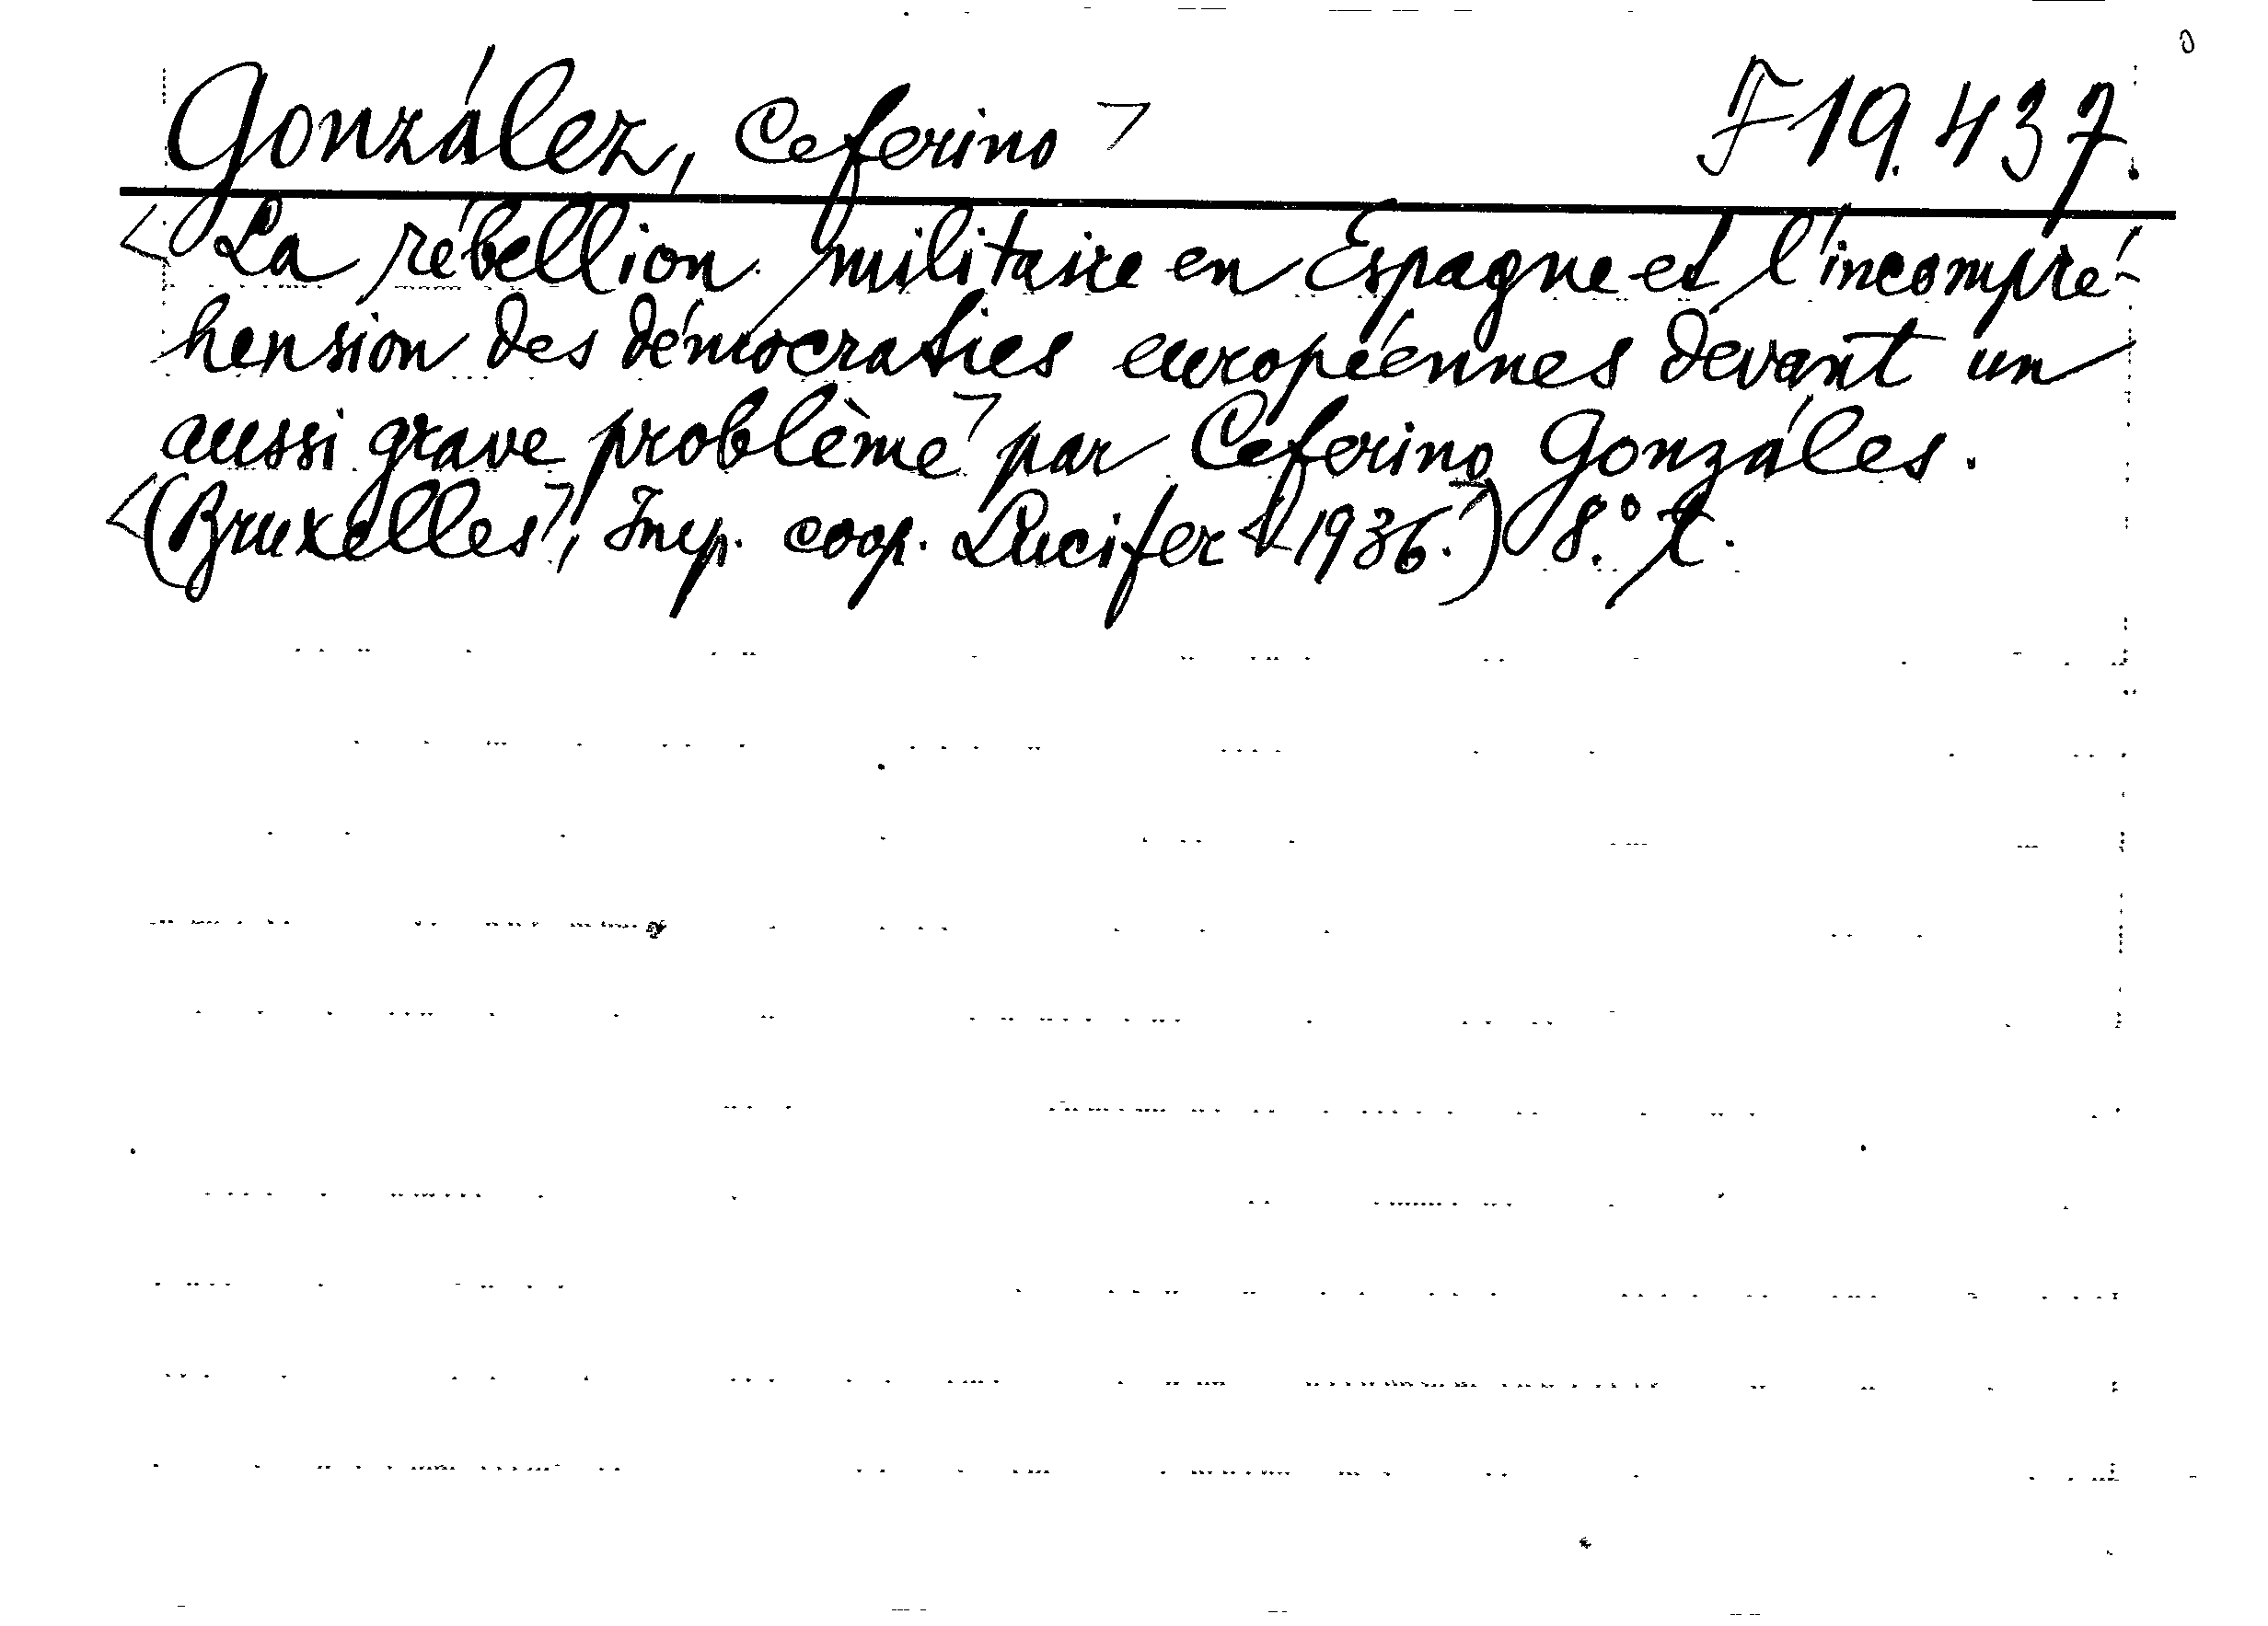 González, Ceferino F 19.437.
La rébellion militaire en Espagne et l'incompré-
hension des démocraties européennes devant un
aussi grave problème par Ceferino Gonzáles.
(Bruxelles, Imp. coop. Lucifer 1936.) 8.°